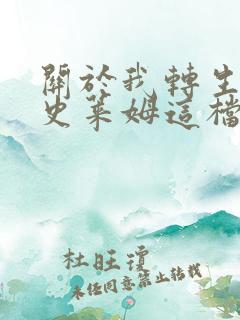 關於我轉生
史萊姆這檔
杜旺瓊
未经同意禁止转载